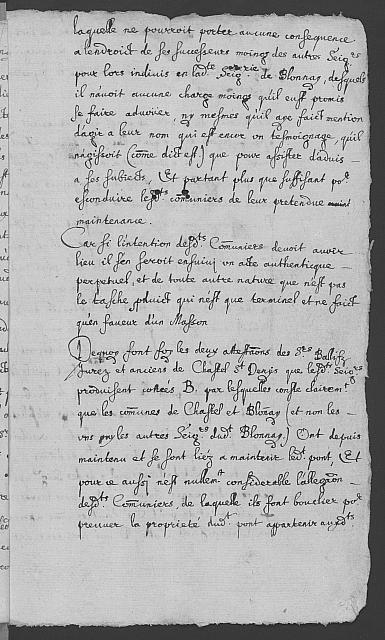 laquelle ne pourroit porter aucune consequence
a lendroict de ses successeurs moings des autres Seigrs
pour lors indiuis en ladte Seigrie de Blonnay, desquels
il nauoit aucune charge moings quil eust promis
se faire aduoüer, ny mesmes quil aye faict mention
dagir a leur nom qui est encor vn tesmoignage, quil
nagissoit (come dict est) que pour assister daduis
a ses subiects, Et partant plus que suffisant por
esconduire lesdts comuniers de leur pretendue
maintenance.
Car si lintention desdts Comuniers deuoit auoir
lieu il sen seroit ensuiuy vn acte authenticque
perpetuel, et de toute autre nature que nest pas
le tasche produict qui nest que terminel et ne faict
quen faueur dun Masson
Dequoy font foy les deux attestaons des Srs Ballifz
Jurez et anciens de Chastel St Denis que lesdts Seigrs
produisent cottées B. par lesquelles conste clairemt
que les comunes de Chastel et Blonay (et non les
vns ny les autres Seigrs dudt Blonnay) Ont depuis
maintenu et se sont liez a maintenir ledt pont, Et
pour ce aussi nest nullemt considerable lallegaon
desdts Comuniers, de laquelle ils font bouclier por
preuuer la proprieté dudt pont appartenir auxdts